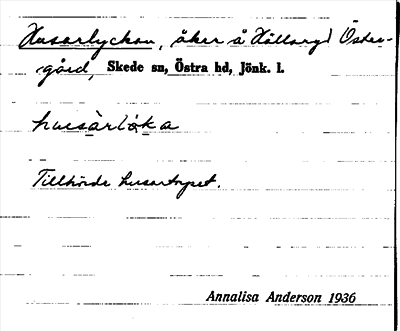 Husarlyckan, åker å Hällaryd Östre-
gård, Skede sn, Östra hd, Jönk. l.
husàrlỳka
Tillhörde husartorpet.
Annalisa Anderson 1936